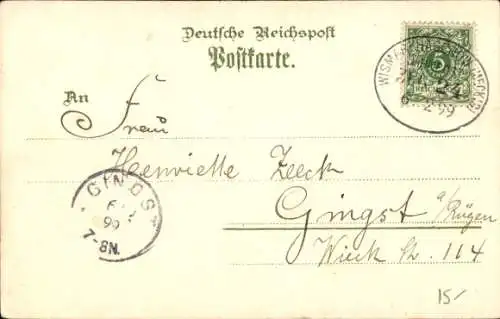 Deutsche Reichspost
Postkarte.
5
2 99
An Frau
Henriette Zeeck
Gingst a/Rügen
Wieck 114
GINGST
99
7-8N.
15/